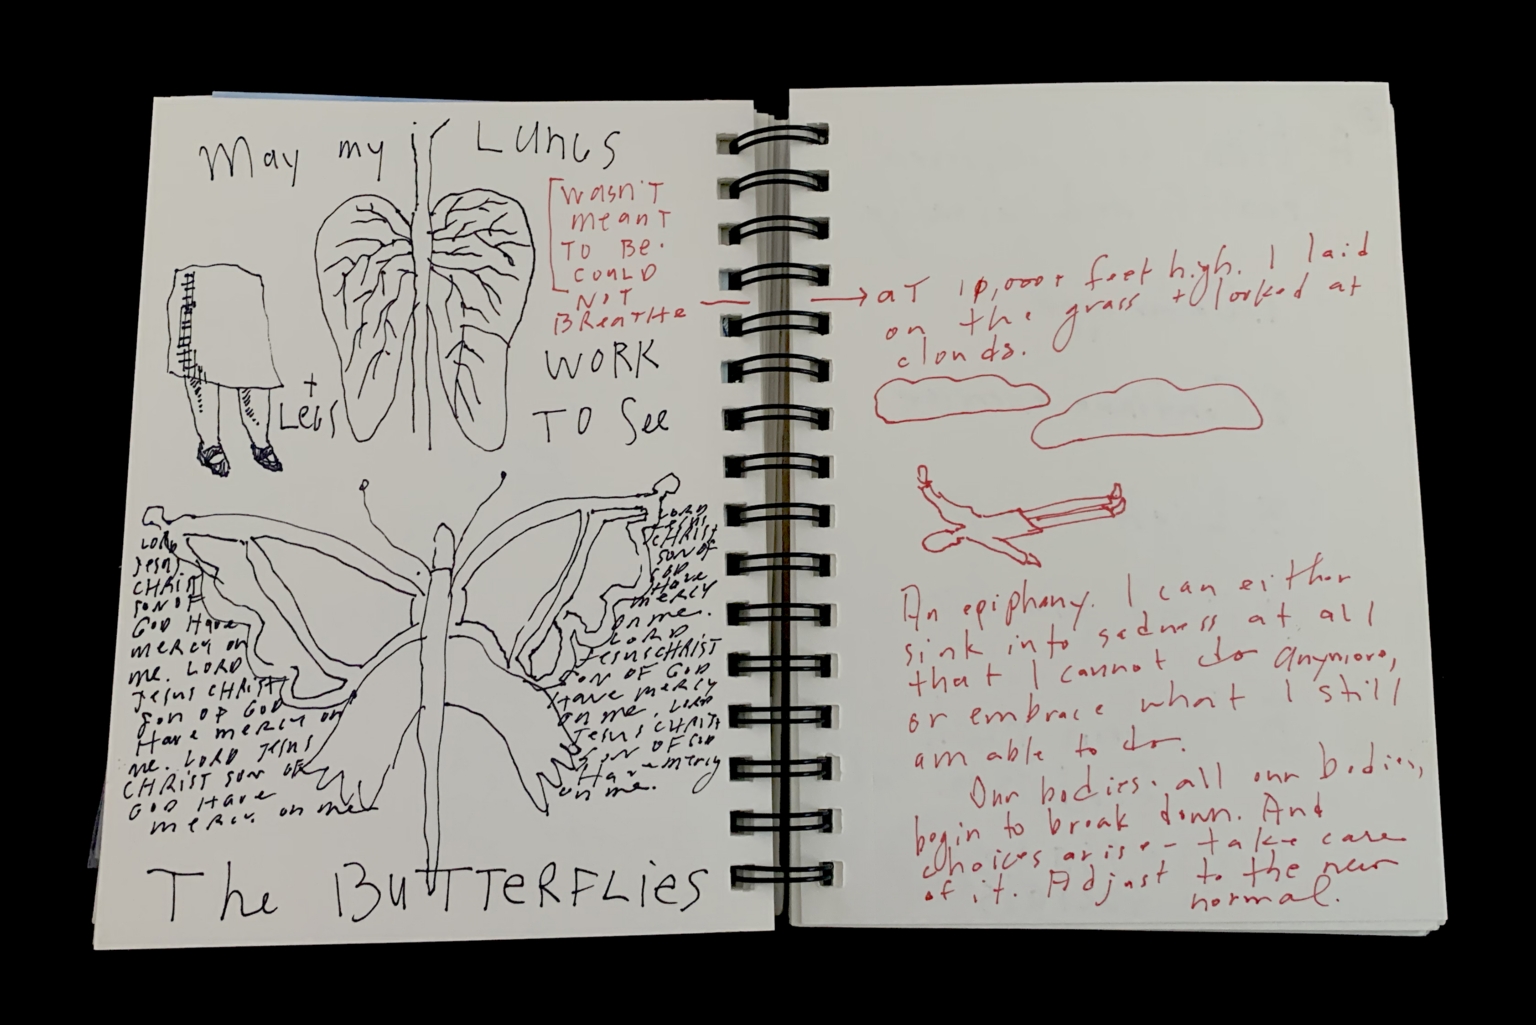 May my LUNGS
[WASN'T
meanT
TO Be.
COULD
NOT
BReaTHe
+
Legs
WORK
TO See
LORD
Jesus
CHRIST
son of
GOD Have
mercy on
me. LORD
Jesus CHRIST
son of GOD
Have mercy on
me. LORD Jesus
CHRIST son of
GOD Have
mercy on me
LORD
Jesus
CHRIST
son of
GOD
Have
mercy
on me.
LORD
Jesus CHRIST
son of GOD
Have mercy
on me. LORD
Jesus CHRIST
son of GOD
Have mercy
on me.
The BuTTeRFLies
→ aT 10,000+ feet high. I laid
on the grass + looked at
clouds.
An epiphany. I can either
sink into sadness at all
that I cannot do anymore,
or embrace what I still
am able to do.
Our bodies. all our bodies,
begin to break down. And
choices arise - take care
of it. Adjust to the new
normal.